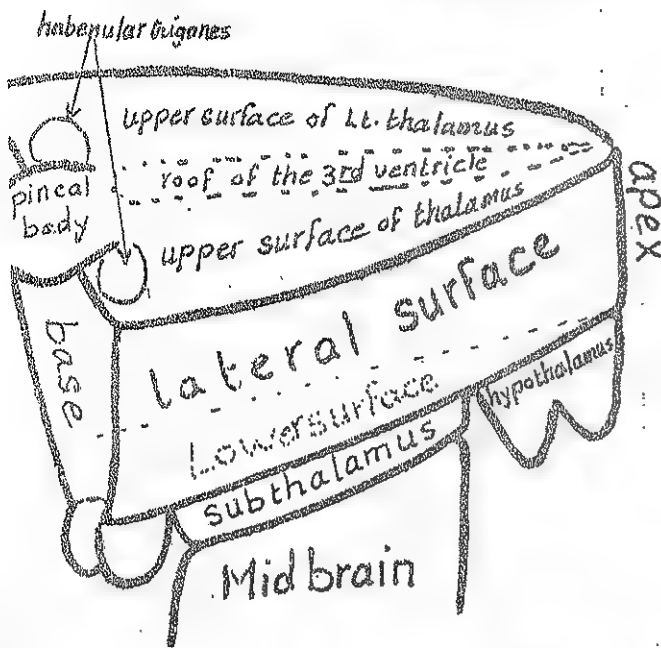 habenular trigones
upper surface of Lt. thalamus
roof of the 3rd ventricle
pineal
body
upper surface of thalamus
apex
base
lateral surface
Lowersurface
hypothalamus
subthalamus
Mid brain